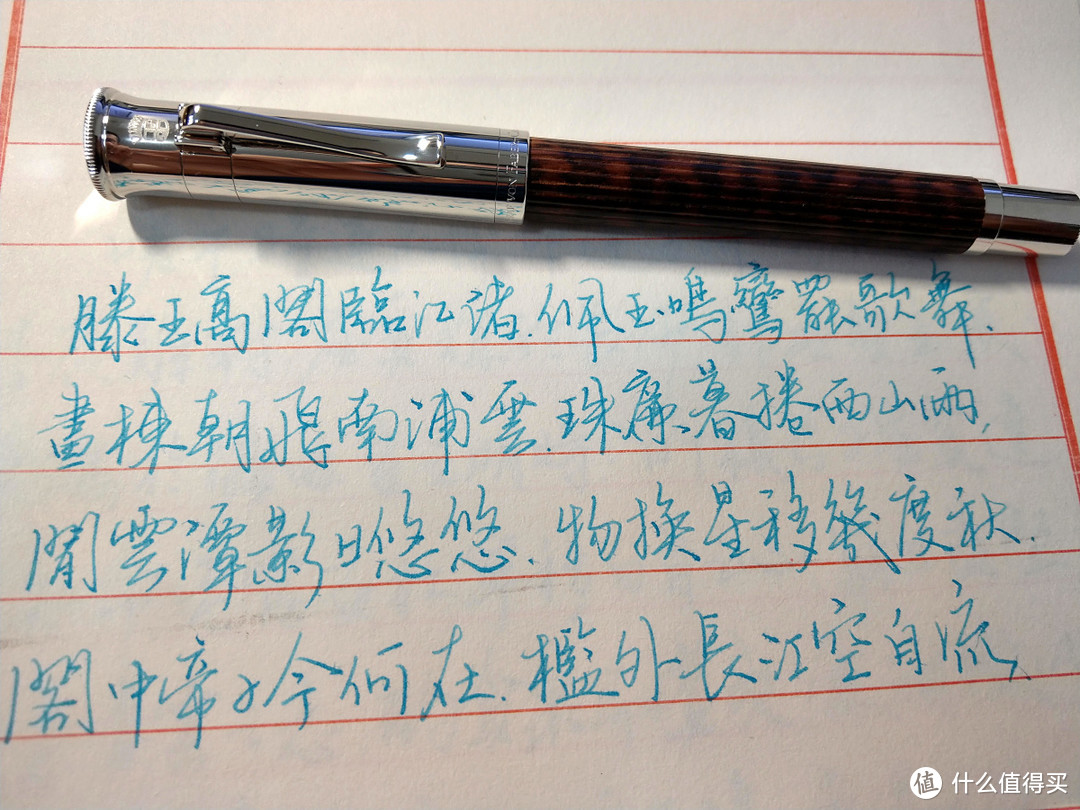 VON FABER-C
滕王高閣臨江渚.佩玉鳴鸞罷歌舞.
畫棟朝飛南浦雲.珠廉暮捲西山雨,
閒雲潭影日悠悠.物換星移幾度秋.
閣中帝子今何在.檻外長江空自流、
值 什么值得买